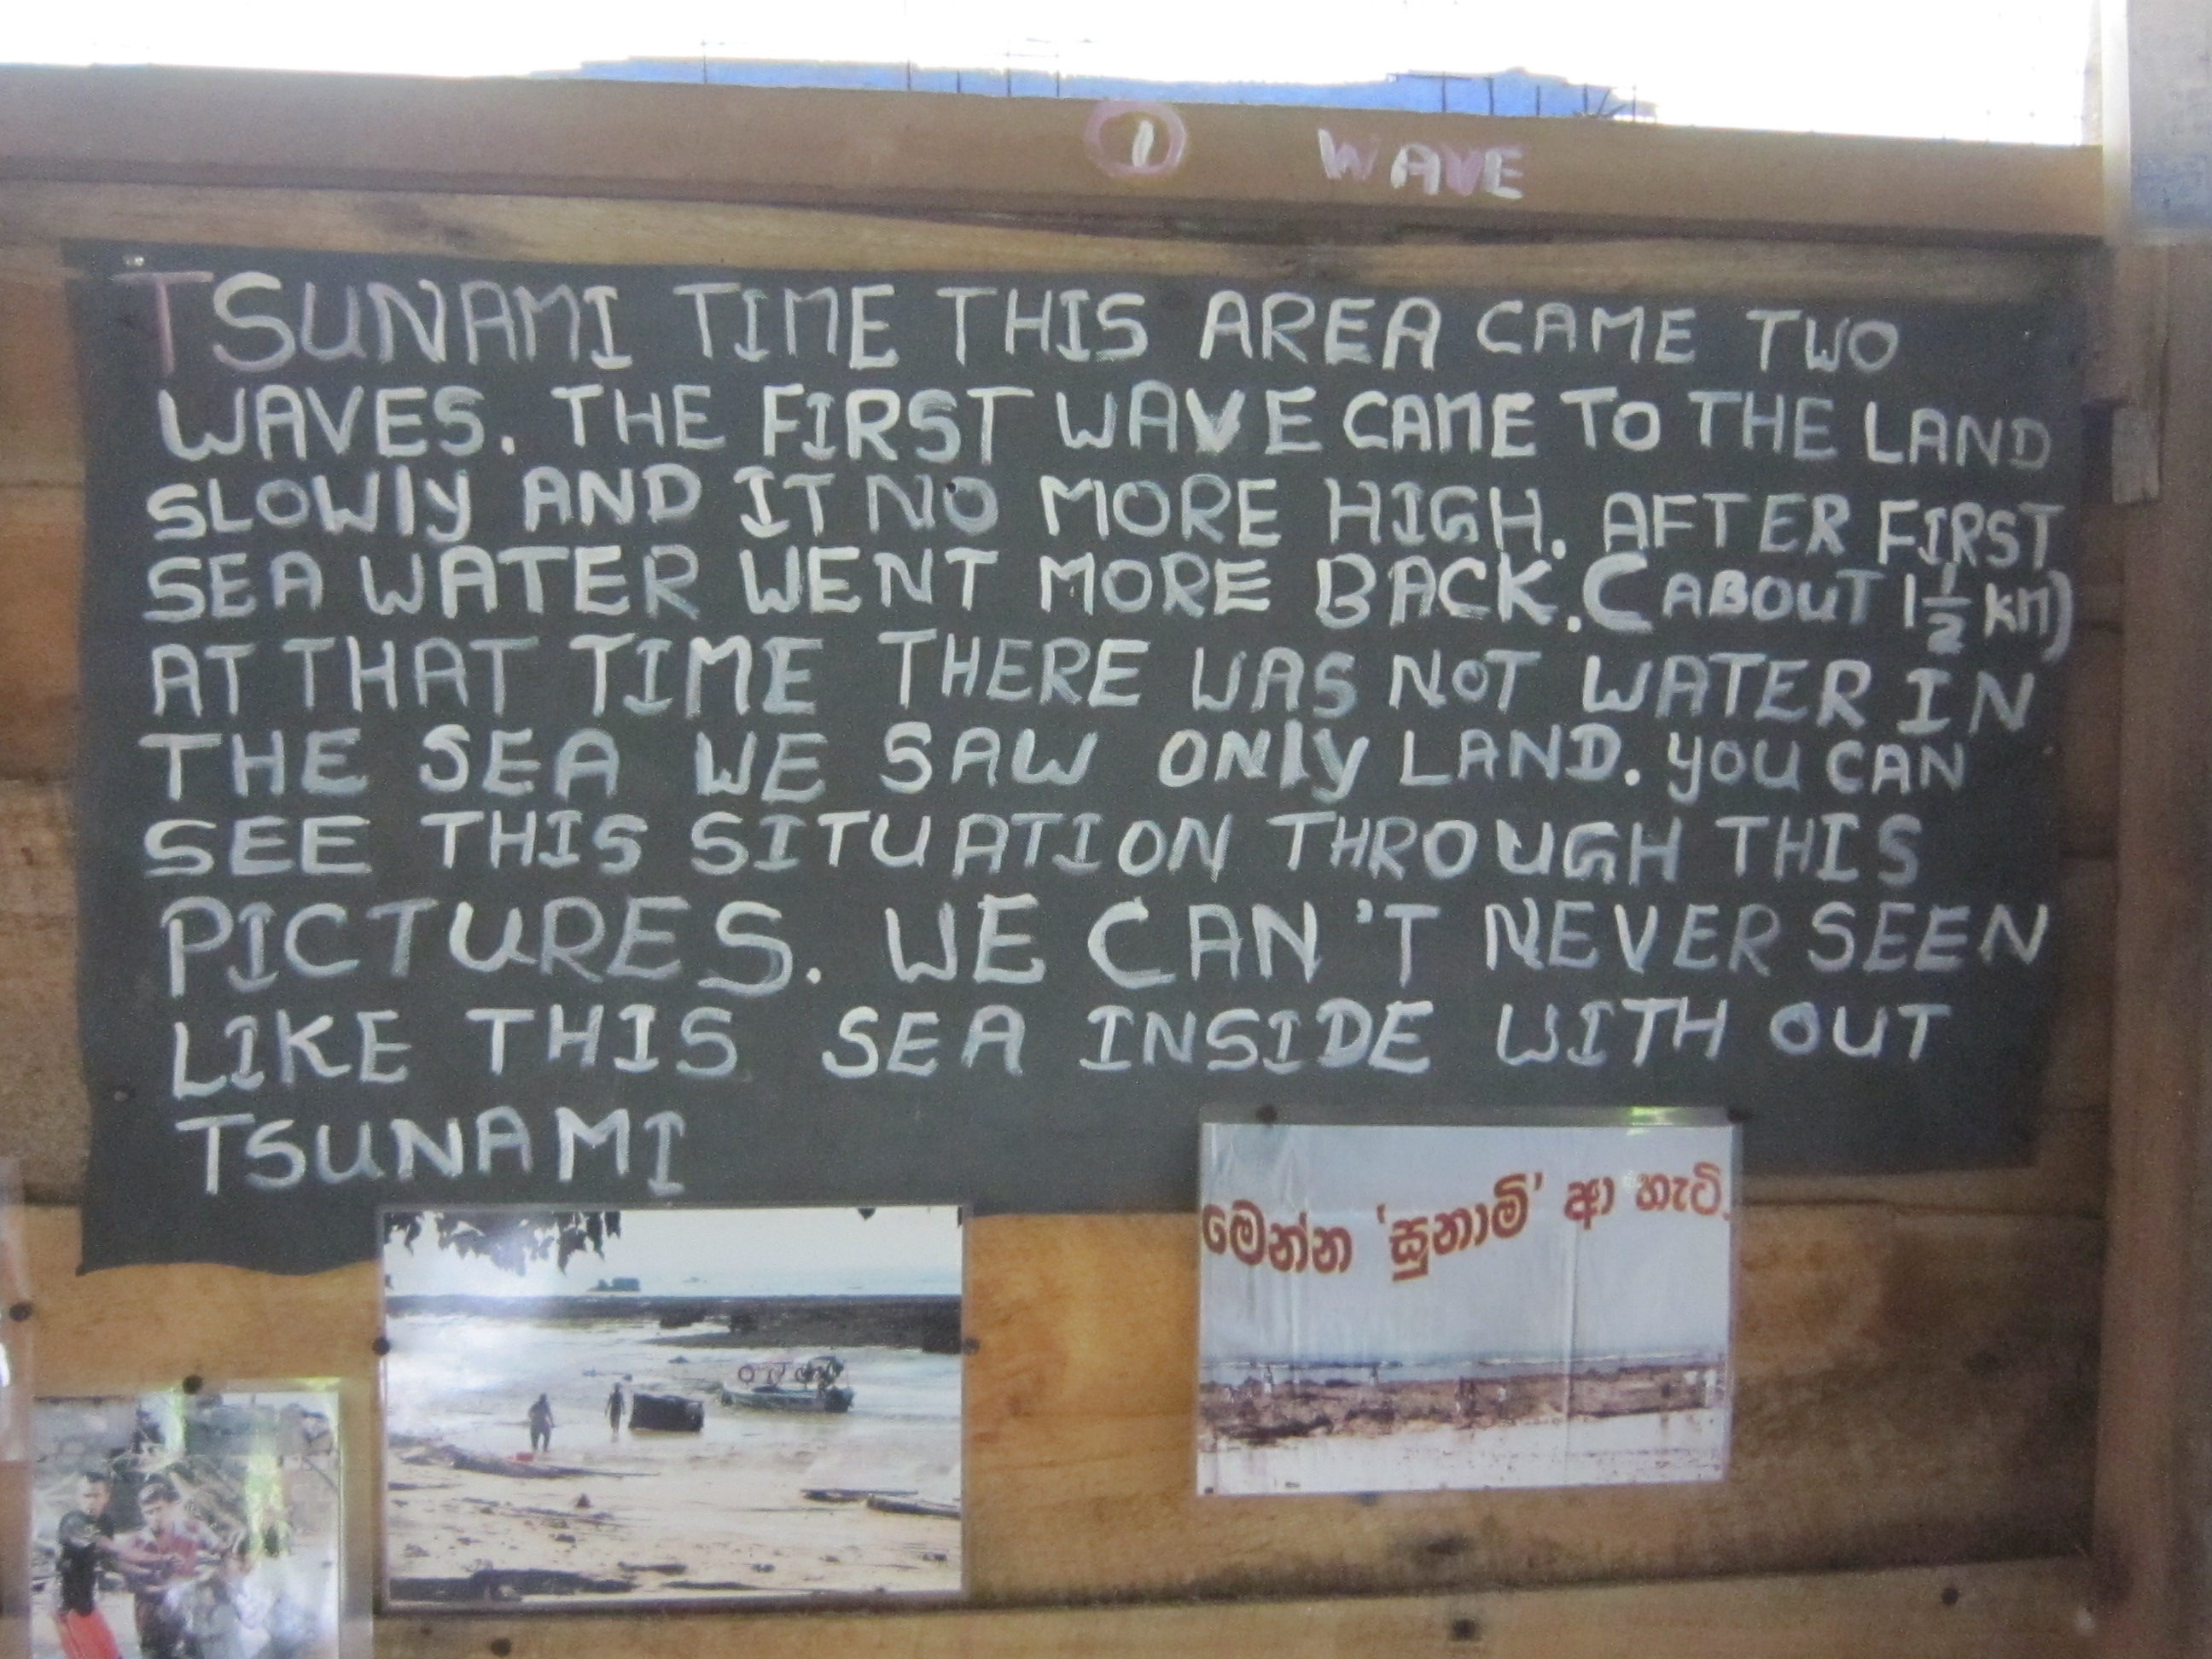 1 WAVE
TSUNAMI TIME THIS AREA CAME TWO
WAVES. THE FIRST WAVE CAME TO THE LAND
SLOWly AND IT NO MORE HIGH. AFTER FIRST
SEA WATER WENT MORE BACK. (ABOUT 1 1/2 KM)
AT THAT TIME THERE WAS NOT WATER IN
THE SEA WE SAW ONly LAND. YOU CAN
SEE THIS SITUATION THROUGH THIS
PICTURES. WE CAN'T NEVER SEEN
LIKE THIS SEA INSIDE WITH OUT
TSUNAMI
මෙන්න 'සුනාමි' ආ හැටි.